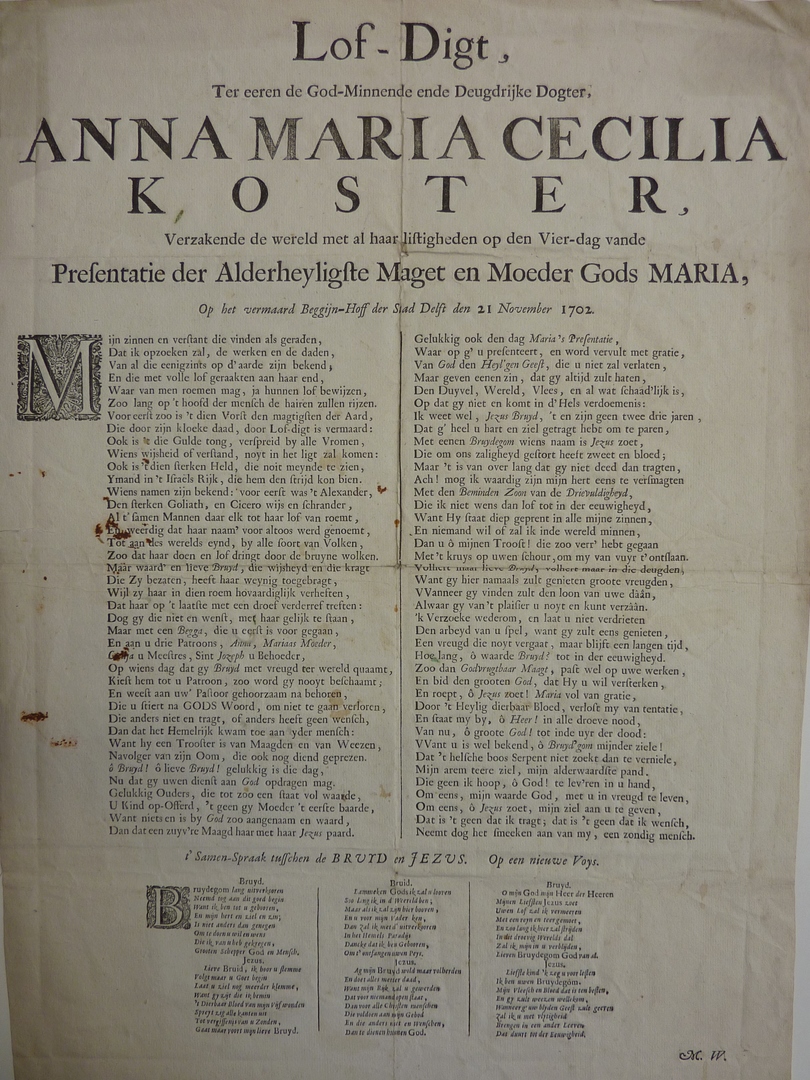 Lof-Digt,
Ter eeren de God-Minnende ende Deugdrijke Dogter,
ANNA MARIA CECILIA
KOSTER,
Verzakende de wereld met al haar liſtigheden op den Vier-dag vande
Preſentatie der Alderheyligſte Maget en Moeder Gods MARIA,
Op het vermaard Beggijn-Hoff der Stad Delft den 21 November 1702.
Mijn zinnen en verſtant die vinden als geraden,
Dat ik opzoeken zal, de werken en de daden,
Van al die eenigzints op d'aarde zijn bekend,
En die met volle lof geraakten aan haar end,
Waar van men roemen mag, ja hunnen lof bewijzen,
Zoo lang op 't hoofd der menſch de hairen zullen rijzen.
Voor eerſt zoo is 't dien Vorſt den magtigſten der Aard,
Die door zijn kloeke daad, door Lof-digt is vermaard:
Ook is 't die Gulde tong, verſpreid by alle Vromen,
Wiens wijsheid of verſtand, noyt in het ligt zal komen:
Ook is 't dien ſterken Held, die noit meynde te zien,
Ymand in 't Iſraëls Rijk, die hem den ſtrijd kon bien.
Wiens namen zijn bekend: voor eerſt was 't Alexander,
Den ſterken Goliath, en Cicero wijs en ſchrander,
Al t'ſamen Mannen daar elk tot haar lof van roemt,
En weerdig dat haar naam' voor altoos werd genoemt,
Tot aan des werelds eynd, by alle ſoort van Volken,
Zoo dat haar doen en lof dringt door de bruyne wolken.
Maar waard' en lieve Bruyd, die wijsheyd en die kragt
Die Zy bezaten, heeft haar weynig toegebragt,
Wijl zy haar in dien roem hovaardiglijk verheften,
Dat haar op 't laatſte met een droef verderref treften:
Dog gy die niet en wenſt, met haar gelijk te ſtaan,
Maar met een Begga, die u eerſt is voor gegaan,
En aan u drie Patroons, Anna, Mariaas Moeder,
u Meeſtres, Sint Joſeph u Behoeder,
Op wiens dag dat gy Bruyd met vreugd ter wereld quaamt,
Kieſt hem tot u Patroon, zoo word gy nooyt beſchaamt;
En weeſt aan uw' Paſtoor gehoorzaam na behoren,
Die u ſtiert na GODS Woord, om niet te gaan verloren,
Die anders niet en tragt, of anders heeft geen wenſch,
Dan dat het Hemelrijk kwam toe aan yder menſch:
Want hy een Trooſter is van Maagden en van Weezen,
Navolger van zijn Oom, die ook nog diend geprezen.
ô Bruyd! ô lieve Bruyd! gelukkig is die dag,
Nu dat gy uwen dienſt aan God opdragen mag.
Gelukkig Ouders, die tot zoo een ſtaat vol waarde,
U Kind op-Offerd, 't geen gy Moeder 't eerſte baarde,
Want niets en is by God zoo aangenaam en waard,
Dan dat een zuyv're Maagd haar met haar Jezus paard.
Gelukkig ook den dag Maria's Preſentatie,
Waar op g' u preſenteert, en word vervult met gratie,
Van God den Heyl'gen Geeſt, die u niet zal verlaten,
Maar geven eenen zin, dat gy altijd zult haten,
Den Duyvel, Wereld, Vlees, en al wat ſchaad'lijk is,
Op dat gy niet en komt in d'Hels verdoemenis:
Ik weet wel, Jezus Bruyd, 't en zijn geen twee drie jaren,
Dat g' heel u hart en ziel getragt hebt om te paren,
Met eenen Bruydegom wiens naam is Jezus zoet,
Die om ons zaligheyd geſtort heeft zweet en bloed;
Maar 't is van over lang dat gy niet deed dan tragten,
Ach! mog ik waardig zijn mijn hert eens te verſmagten
Met den Beminden Zoon van de Drievuldigheyd,
Die ik niet wens dan lof tot in der eeuwigheyd,
Want Hy ſtaat diep geprent in alle mijne zinnen,
En niemand wil of zal ik inde wereld minnen,
Dan u ô mijnen Trooſt! die zoo vert' hebt gegaan
Met 't kruys op uwen ſchour, om my van vuyr t'ontſlaan.
Volhert maar lieve Bruyd, volhert maar in die deugden,
Want gy hier namaals zult genieten groote vreugden,
VVanneer gy vinden zult den loon van uwe dâân,
Alwaar gy van 't plaiſier u noyt en kunt verzâân.
'k Verzoeke wederom, en laat u niet verdrieten
Den arbeyd van u ſpel, want gy zult eens genieten,
Een vreugd die noyt vergaat, maar blijft een langen tijd,
Hoe lang, ô waarde Bruyd? tot in der eeuwigheyd.
Zoo dan Godvrugtbaar Maagt, paſt wel op uwe werken,
En bid den grooten God, dat Hy u wil verſterken,
En roept, ô Jezus zoet! Maria vol van gratie,
Door 't Heylig dierbaar Bloed, verloſt my van tentatie,
En ſtaat my by, ô Heer! in alle droeve nood,
Van nu, ô groote God! tot inde uyr der dood:
VVant u is wel bekend, ô Bruyd'gom mijnder ziele!
Dat 't helſche boos Serpent niet zoekt dan te verniele,
Mijn arem teere ziel, mijn alderwaardſte pand,
Die geen ik hoop, ô God! te lev'ren in u hand,
Om eens, mijn waarde God, met u in vreugd te leven,
Om eens, ô Jezus zoet, mijn ziel aan u te geven,
Dat is 't geen dat ik tragt; dat is 't geen dat ik wenſch,
Neemt dog het ſmeeken aan van my, een zondig menſch.
t' Samen-Spraak tuſſchen de BRUYD en JEZUS. Op een nieuwe Voys.
Bruyd.
Bruydegom lang uitverkoren
Neemd tog aan dit goed begin
Want ik ben tot u geboren,
En mijn hert en ziel en zin,
Is niet anders dan genegen
Om te doen u wil en wens
Die ik van u heb gekregen,
Grooten Schepper God en Menſch.
Jezus.
Lieve Bruid, ik hoor u ſtemme
Volgt maar u Goet begin
Laat u ziel nog meerder klemme,
Want gy zijt die ik bemin
't Dierbaar Bloed van mijn Vijf wonden
Spreyt zig alle kanten uit
Tot vergiffenis van u Zonden,
Gaat maar voort mijn lieve Bruyd.
Bruid.
Lammeken Gods ik zal u looven
Zoo lang ik in d' Wereld ben;
Maar als ik zal zijn hier booven,
En u voor mijn Vader ken,
Dan zal ik met d' uitverkoren
In het Hemels Paradijs
Danske dat ik ben Geboren,
Om t' ontfangen uwen Prys.
Jezus.
Ag mijn Bruyd weld maar volherden
En doet alles metter daad,
Want mijn Rijk zal u gewerden
Dat voor niemand open ſtaat,
Dan voor alle Chriſten menſchen
Die voldien aan mijn Gebod
En die anders niet en Wenſchen,
Dan te dienen hunnen God.
Bruyd.
O mijn God mijn Heer der Heeren
Mijnen Liefſten Jezus zoet
Uwen Lof zal ik vermeeren
Met een reyn en teer gemoet,
En zoo lang ik hier zal ſtrijden
In die droevig Werelds dal
Zal ik mijn in u verblijden,
Lieven Bruydegom God van al.
Jezus.
Liefſte kind 'k zeg u voor leſten
Ik ben uwen Bruydegom.
Mijn Vleeſch en Bloed dat is ten beſten,
En gy zult weezen wellekom,
Wanneer gy uw blyden Geeſt zult geeven
Zal ik u met vlytigheid
Brengen in een ander Leeven
Dat duurt tot der Eeuwigheid.
M. W.